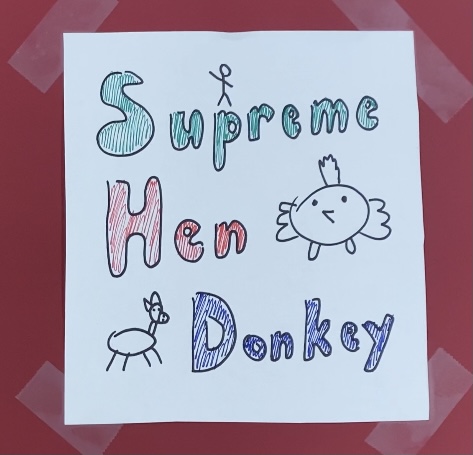 Supreme
Hen
Donkey